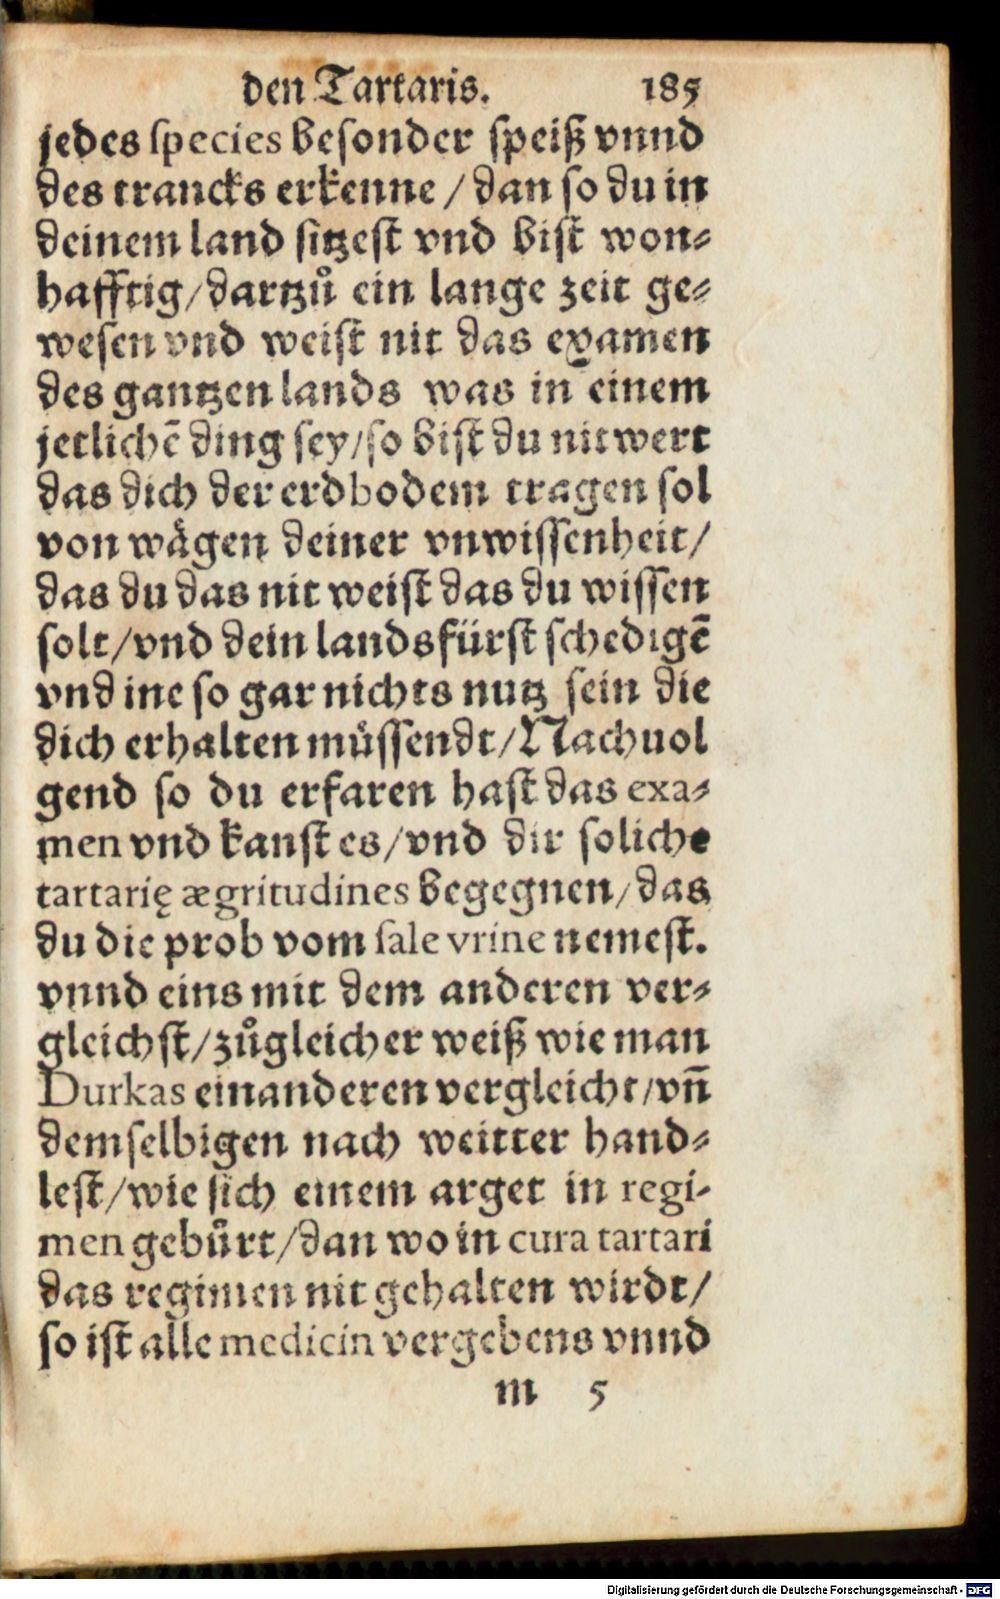 den Tartaris. 185
jedes species besonder speiß vnnd
des trancks erkenne / dan so du in
deinem land sitzest vnd bist won⸗
hafftig / dartzů ein lange zeit ge⸗
wesen vnd weist nit das examen
des gantzen lands was in einem
jetlichē ding sey / so bist du nit wert
das dich der erdbodem tragen sol
von wägen deiner vnwissenheit /
das du das nit weist das du wissen
solt / vnd dein landsfürst schedigē
vnd ine so gar nichts nutz sein die
dich erhalten müssendt / Nachuol
gend so du erfaren hast das exa⸗
men vnd kanst es / vnd dir soliche
tartarię ægritudines begegnen / das
du die prob vom sale vrine nemest.
vnnd eins mit dem anderen ver⸗
gleichst / zůgleicher weiß wie man
Durkas einanderen vergleicht / vn̄
demselbigen nach weitter hand⸗
lest / wie sich einem arget in regi-
men gebürt / dan wo in cura tartari
das regimen nit gehalten wirdt /
so ist alle medicin vergebens vnnd
m 5
Digitalisierung gefördert durch die Deutsche Forschungsgemeinschaft - DFG